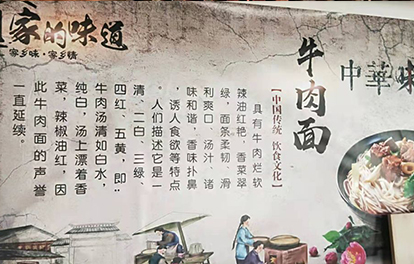 家的味道
家乡味·家乡情
中華味
牛肉面
【中国传统 饮食文化】
具有牛肉烂软
辣油红艳，香菜翠
绿，面条柔韧、滑
利爽口、汤汁、诸
味和谐，香味扑鼻
，诱人食欲等特点
。人们描述它是一
清、二白、三绿、
四红、五黄，即：
牛肉汤清如白水，
纯白，汤上漂着香
菜，辣椒油红，因
此牛肉面的声誉
一直延续。